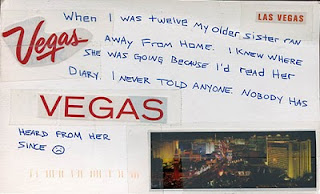 LAS VEGAS
Vegas
WHEN I WAS TWELVE MY OLDER SISTER RAN
AWAY FROM HOME. I KNEW WHERE
SHE WAS GOING BECAUSE I'D READ HER
DIARY. I NEVER TOLD ANYONE. NOBODY HAS
VEGAS
HEARD FROM HER
SINCE ☹